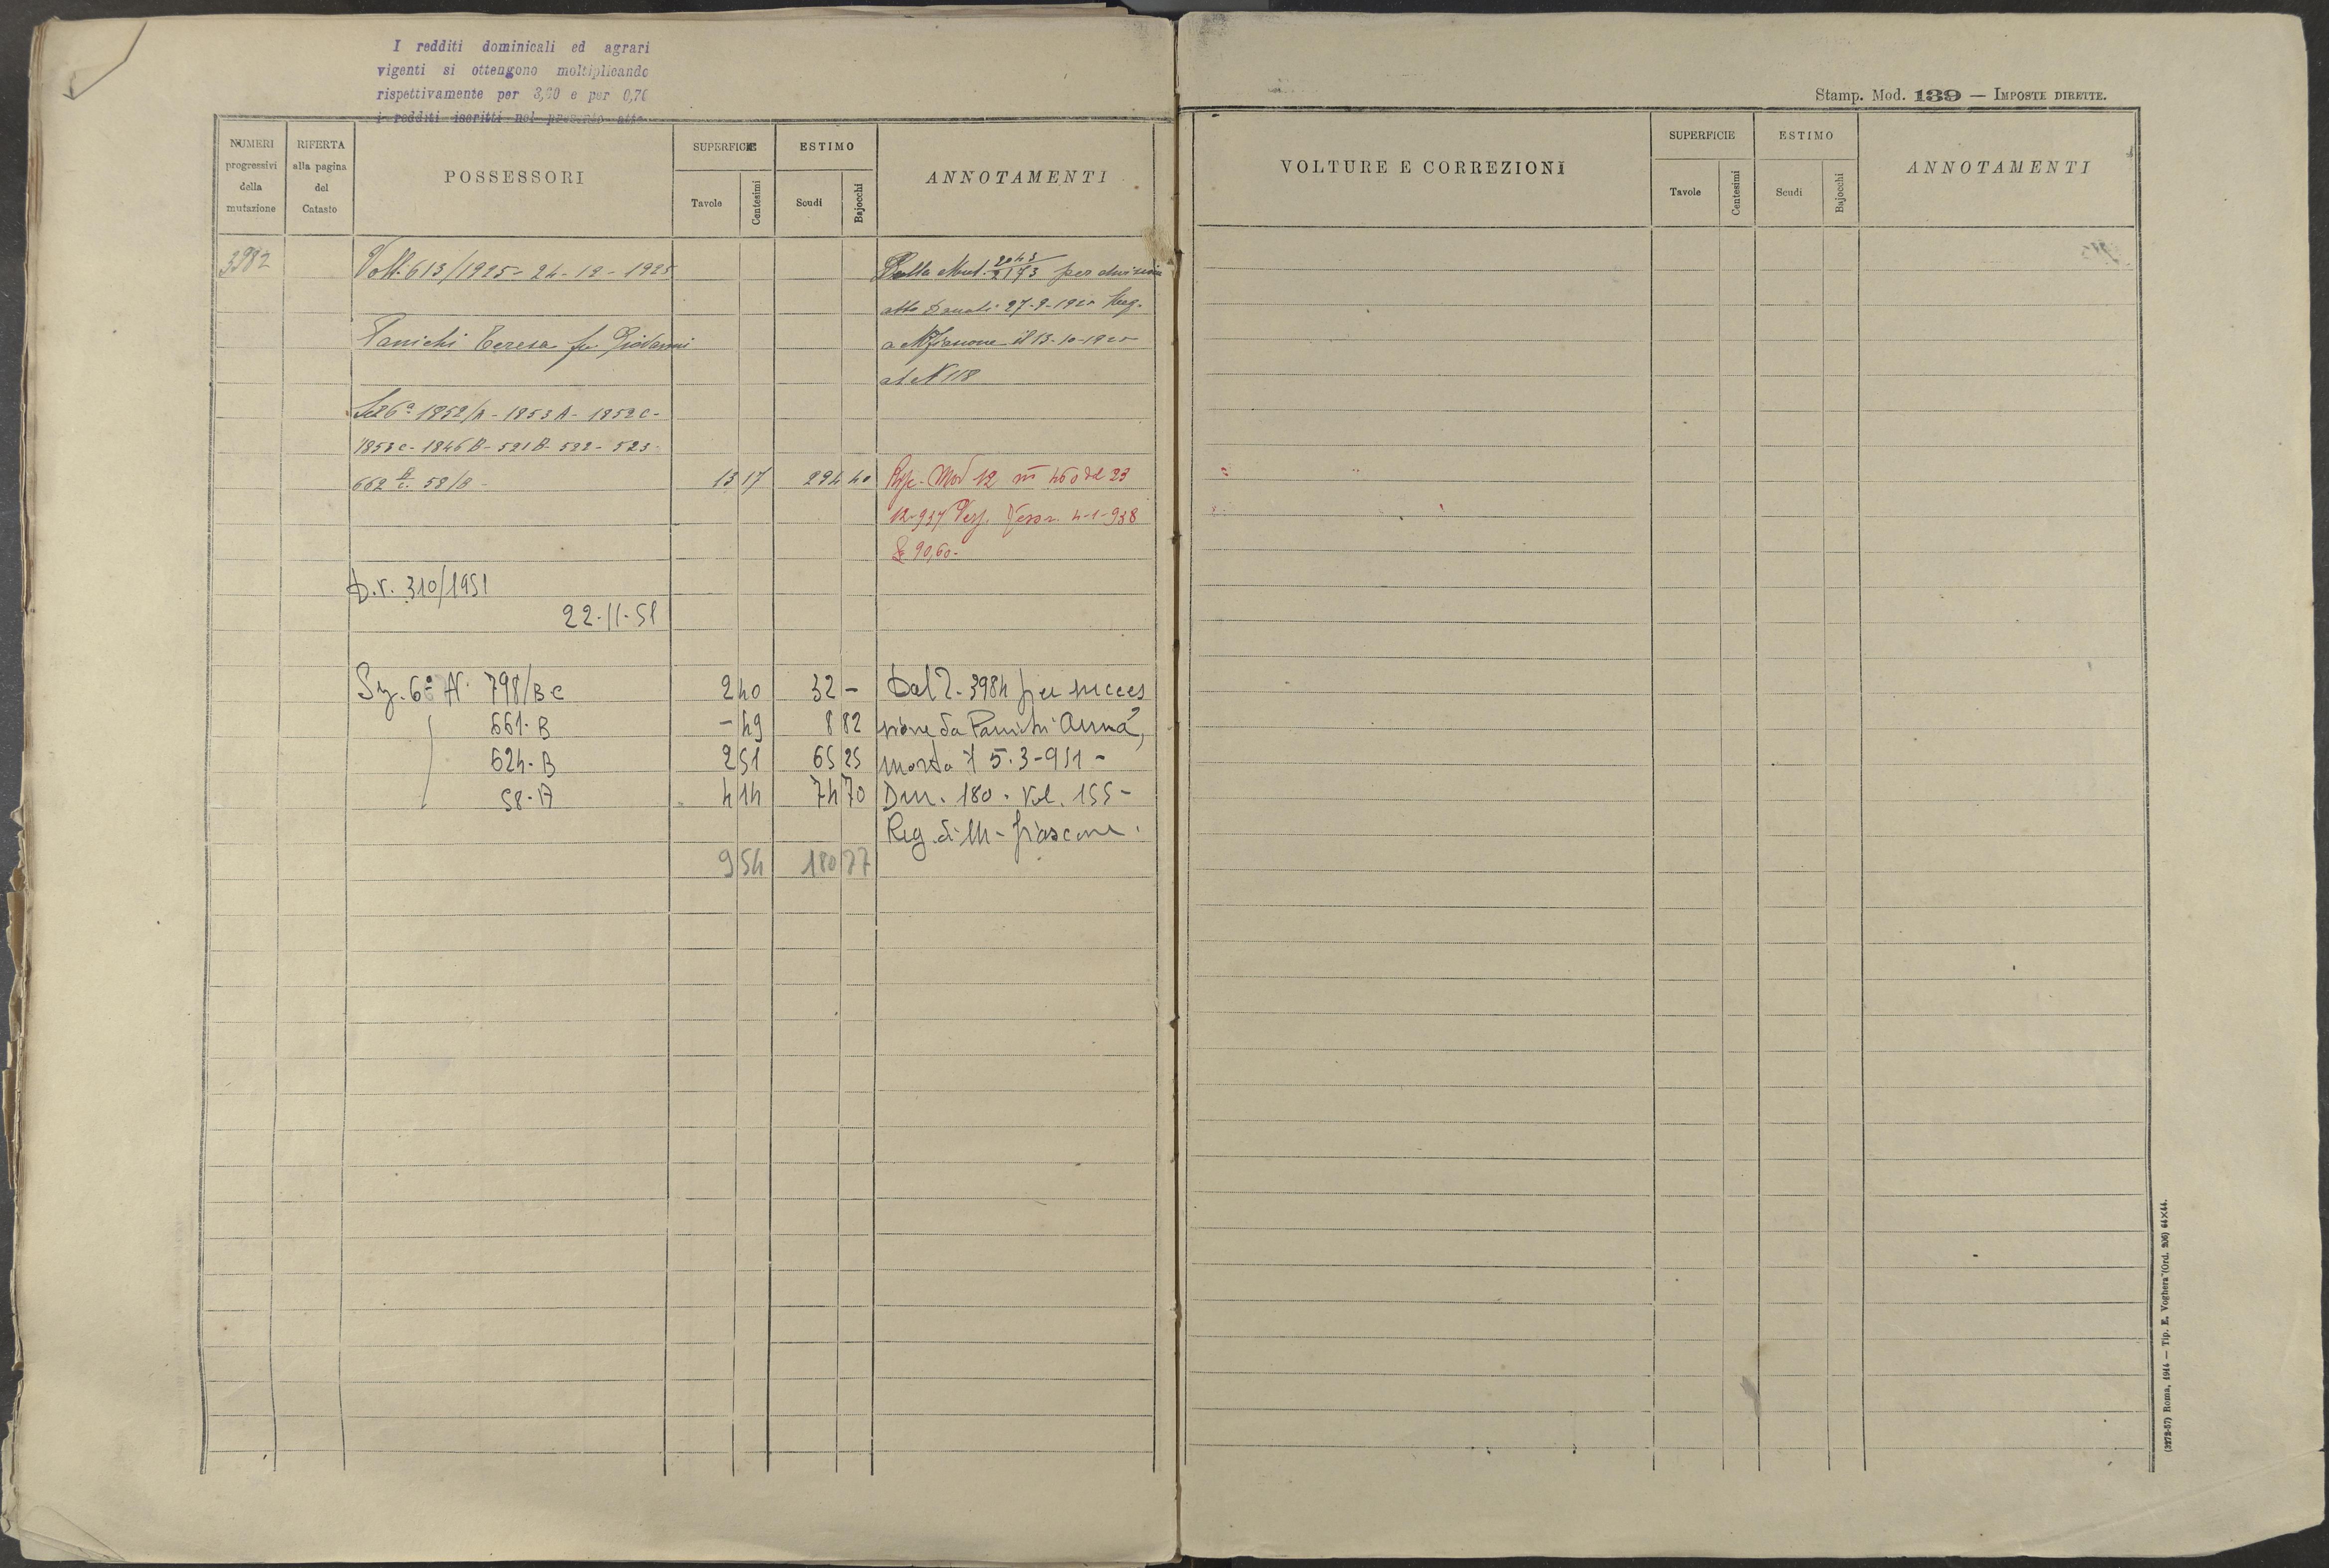 I redditi dominicali ed agrari
vigenti si ottengono moltiplicando
rispettivamente per 3,60 e per 0,70
i redditi iscritti nel presente atto
Stamp. Mod. 139 — IMPOSTE DIRETTE.
NUMERI progressivi della mutazione
RIFERTA alla pagina del Catasto
POSSESSORI
SUPERFICIE
Tavole
Centesimi
ESTIMO
Scudi
Bajocchi
ANNOTAMENTI
VOLTURE E CORREZIONI
SUPERFICIE
Tavole
Centesimi
ESTIMO
Scudi
Bajocchi
ANNOTAMENTI
3982 Volt. 613/1925 - 24-12-1925 Dalla Mut. 2043/2173 per divisione
atto Donati 27-9-1925 Reg.
Panichi Teresa fu Giovanni a Mfiascone il 13-10-1925
al N 118
Sez 6ª 1852/A - 1853A - 1852C -
1853C - 1846B - 521B - 522 - 523 -
662 58/B - 13 17 294 40 Mod 12 nº 460 del 23
12-937 Tesor. 4-1-938
£ 90,60 -
D.V. 310/1951
22-11-51
Sz. 6ª Nº 798/BC 2 40 32 - Dal 2. 3984 per succes
661-B - 49 8 82 sione da Panichi Anna,
624-B 2 51 65 25 morta il 5-3-951 -
58-A 4 14 74 70 Den. 180. Vol. 155 -
Reg. di M-fiascone.
9 54 180 77
(3272-57) Roma, 1944 — Tip. E. Voghera (Ord. 206) 64×44.